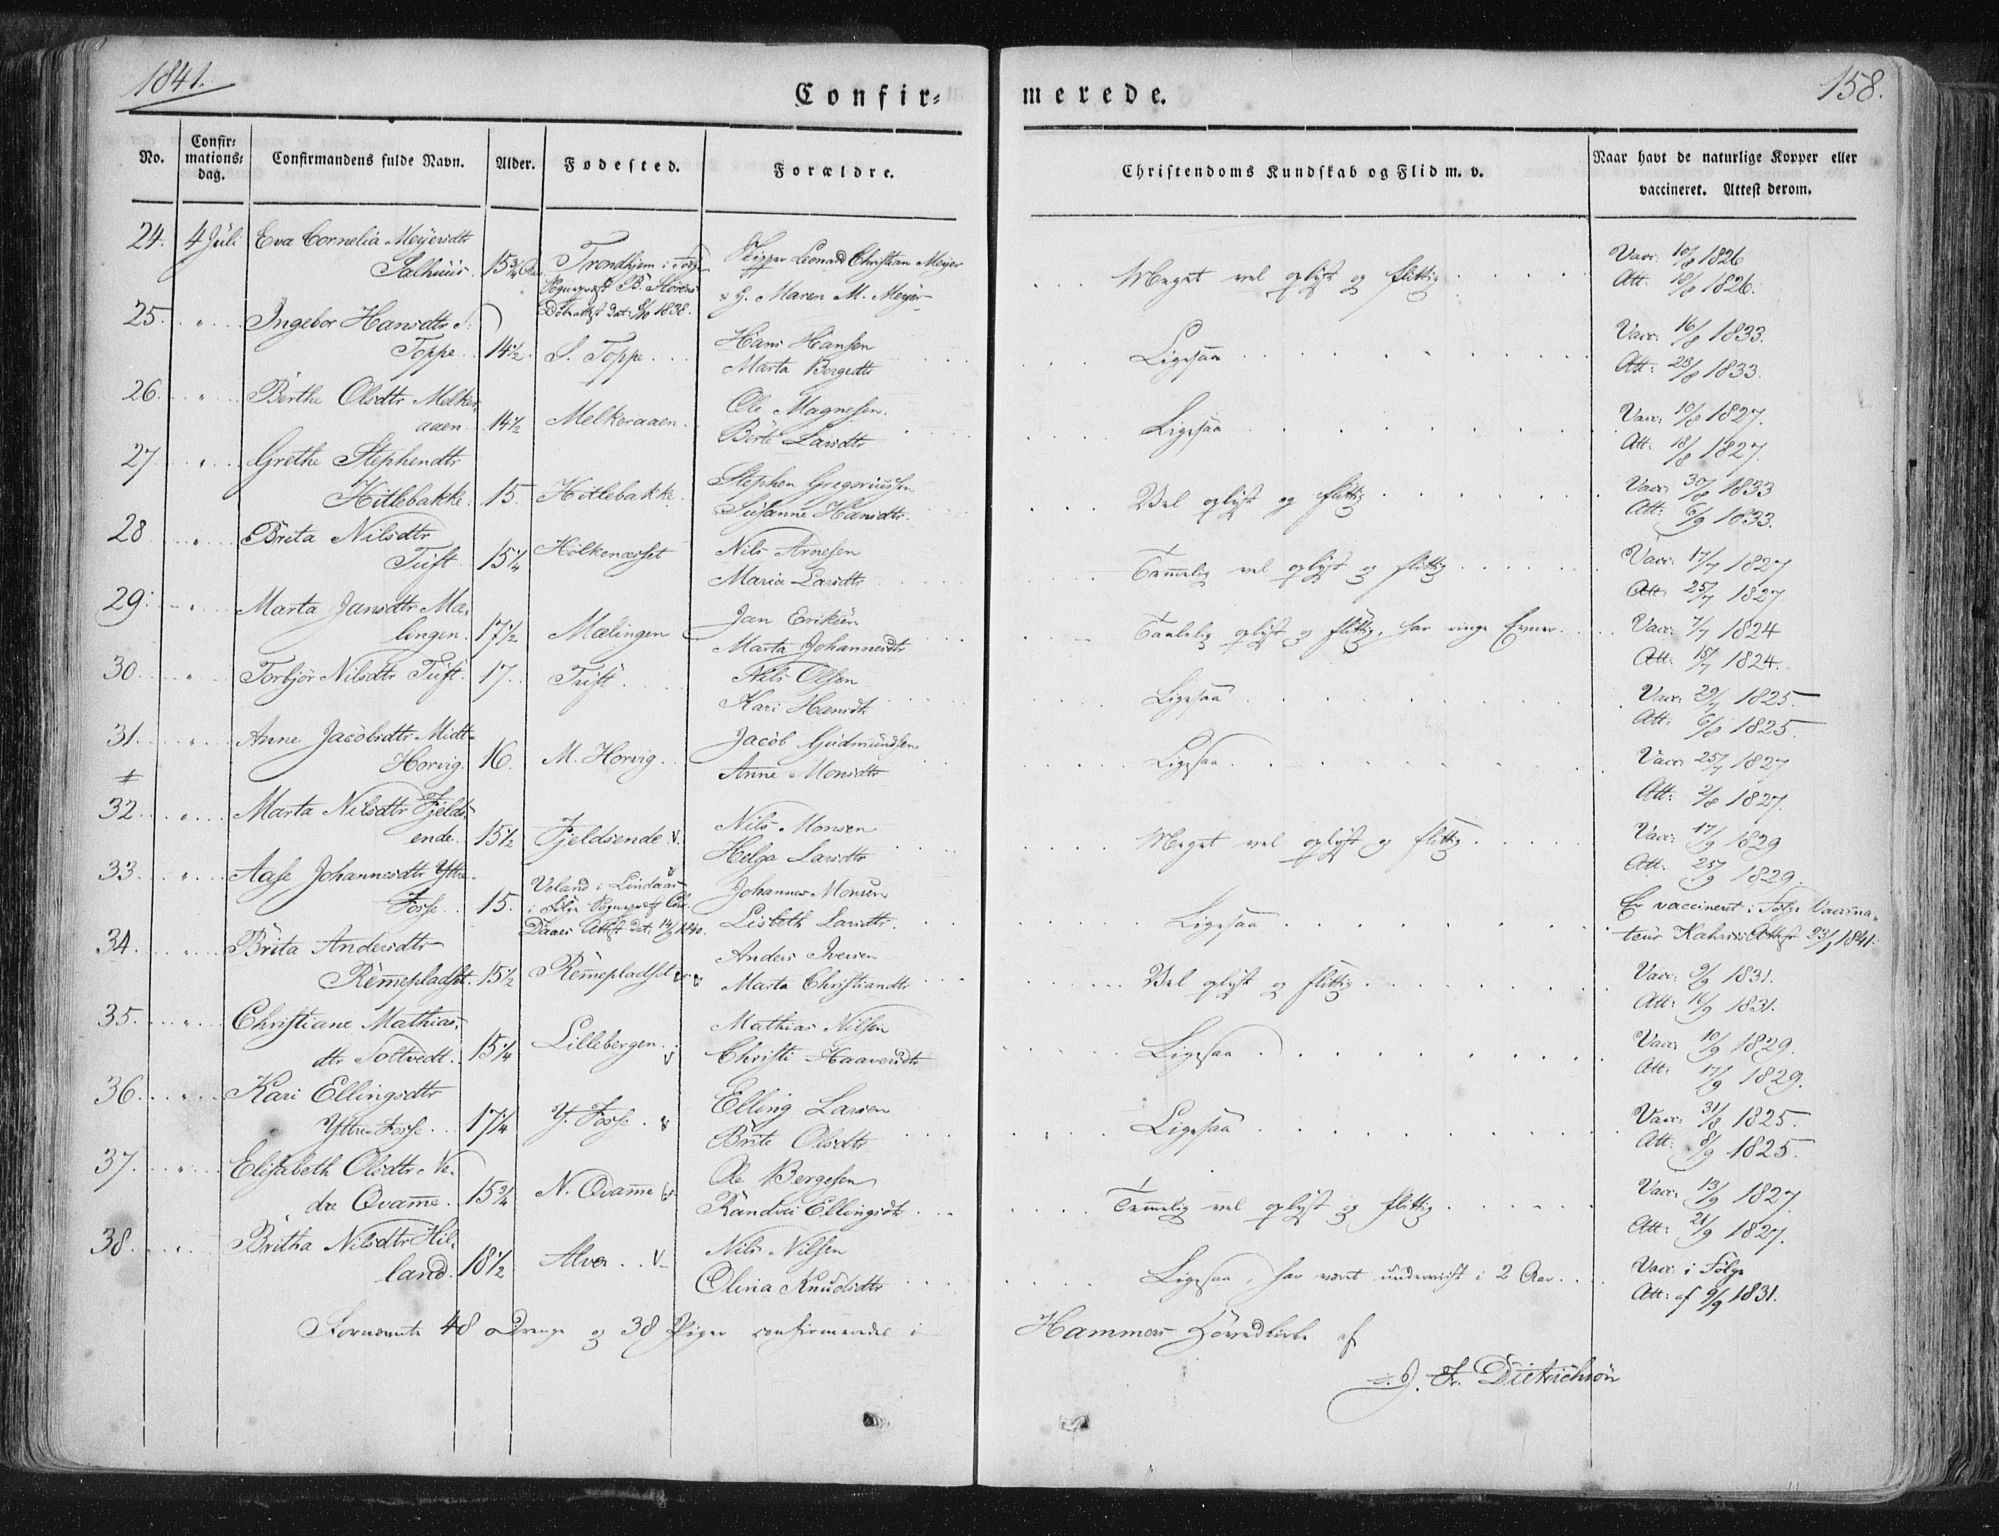 1841.
Confir=
merede.
158.
No.
Confir=
mations=
dag.
Confirmandens fulde Navn.
Alder.
Fødested.
Forældre.
Christendoms Kundskab og Flid m. v.
Naar havt de naturlige Kopper eller
vaccineret. Attest derom.
24. 4 Juli Eva Cornelia Meyersdtr
Salhuus. 15 3/4 Trondhjem i Følge Leonard Christian Meyer
Sognepræst B. & H. Maren M. Meyer
Døbeattest dat: 1838.
Meget vel oplyst og flittig
Vacc: 10/8 1826
Att. 18/8 1826.
25. " Ingebor Hansdtr S.
Toppe. 14 1/2 S. Toppe Hans Hansen
Marta Bergedtr
Ligesaa
Vacc: 16/8 1833.
Att: 23/8 1833.
26. " Berthe Olsdtr Melker
aaen. 14 1/2 Melkeraaen. Ole Magnesen.
Berte Larsdtr
Ligesaa
Vacc: 10/8 1827.
Att. 18/8 1827.
27 " Grethe Stephendtr
Hitlebakke. 15. Hitlebakke. Stephen Gregoriussen
Susanne Hansdtr.
Vel oplyst og flittig
Vacc: 30/8 1833
Att: 6/9 1833.
28 " Brita Nilsdtr
Tuft. 15 1/4 Holkenæsset Nils Arnesen
Maria Larsdtr
Temmelig vel oplyst og flittig
Vacc: 17/7 1827
Att: 25/7 1827.
29. " Marta Jansdtr Mæ-
lingen. 17 1/2 Mælingen Jan Eriksen
Marta Johannesdtr
Taalelig oplyst og flittig, har ringe Evner.
Vacc: 7/7 1824
Att: 15/7 1824.
30. " Torbjør Nilsdtr Tuft. 17. Tuft Nils Olsen
Kari Hansdtr
Ligesaa
Vacc: 29/7 1825.
Att: 6/8 1825.
31. " Anne Jacobsdtr Midt-
Horvig. 16. M. Horvig. Jacob Gudmundsen
Anne Monsdtr
Ligesaa.
Vacc: 25/7 1827
Att: 2/8 1827.
#
32. " Marta Nilsdtr Fjelds-
ende. 15 1/2 Fjeldsende v. Nils Monsen
Helga Larsdtr
Meget vel oplyst og flittig
Vacc: 17/9 1829
Att: 25/9 1829.
33. " Aase Johannesdtr Yttre-
Fosse. 15. Veland i Lindaas Johannes Monsen
i Følge Sognepræst Lisbeth Larsdtr.
Daaes Attest dat: 14/ 1840.
Ligesaa
Er vaccineret i Følge Vaccina-
teur Attest 23/1 1841.
34. " Brita Andersdtr
Remmepladset. 15 1/2 Remmepladset v Anders Iversen
Marta Christiandtr
Vel oplyst og flittig
Vacc: 9/9 1831.
Att: 16/9 1831.
35. " Christiane Mathias-
dtr Soltvedt. 15 1/4 Lillebergen. v Mathias Nilsen
Christi Haaversdtr
Ligesaa
Vacc: 10/9 1829.
Att: 17/9 1829.
36. " Kari Ellingsdtr
Yttre Fosse. 17 1/4 Y. Fosse. v Elling Larsen
Brite Olsdtr
Ligesaa
Vacc: 31/8 1825.
Att: 8/9 1825.
37. " Elisabeth Olsdtr Ne-
dre Qvamme. 15 3/4 N. Qvamme v Ole Bergesen
Randvei Ellingsdtr
Temmelig vel oplyst og flittig
Vacc: 13/9 1827.
Att: 21/9 1827.
38. " Britha Nilsdtr Hil-
land. 18 1/2 Alver. v Nils Nilsen
Olina Knudsdtr
Ligesaa, har været underviist i 2 Aar.
Vacc: i Følge
Att: af 9/9 1831.
Fornævnte 48 Drenge og 38 Piger confirmeredes i Hammers Hovedkirke af
Fr. Dietrichson